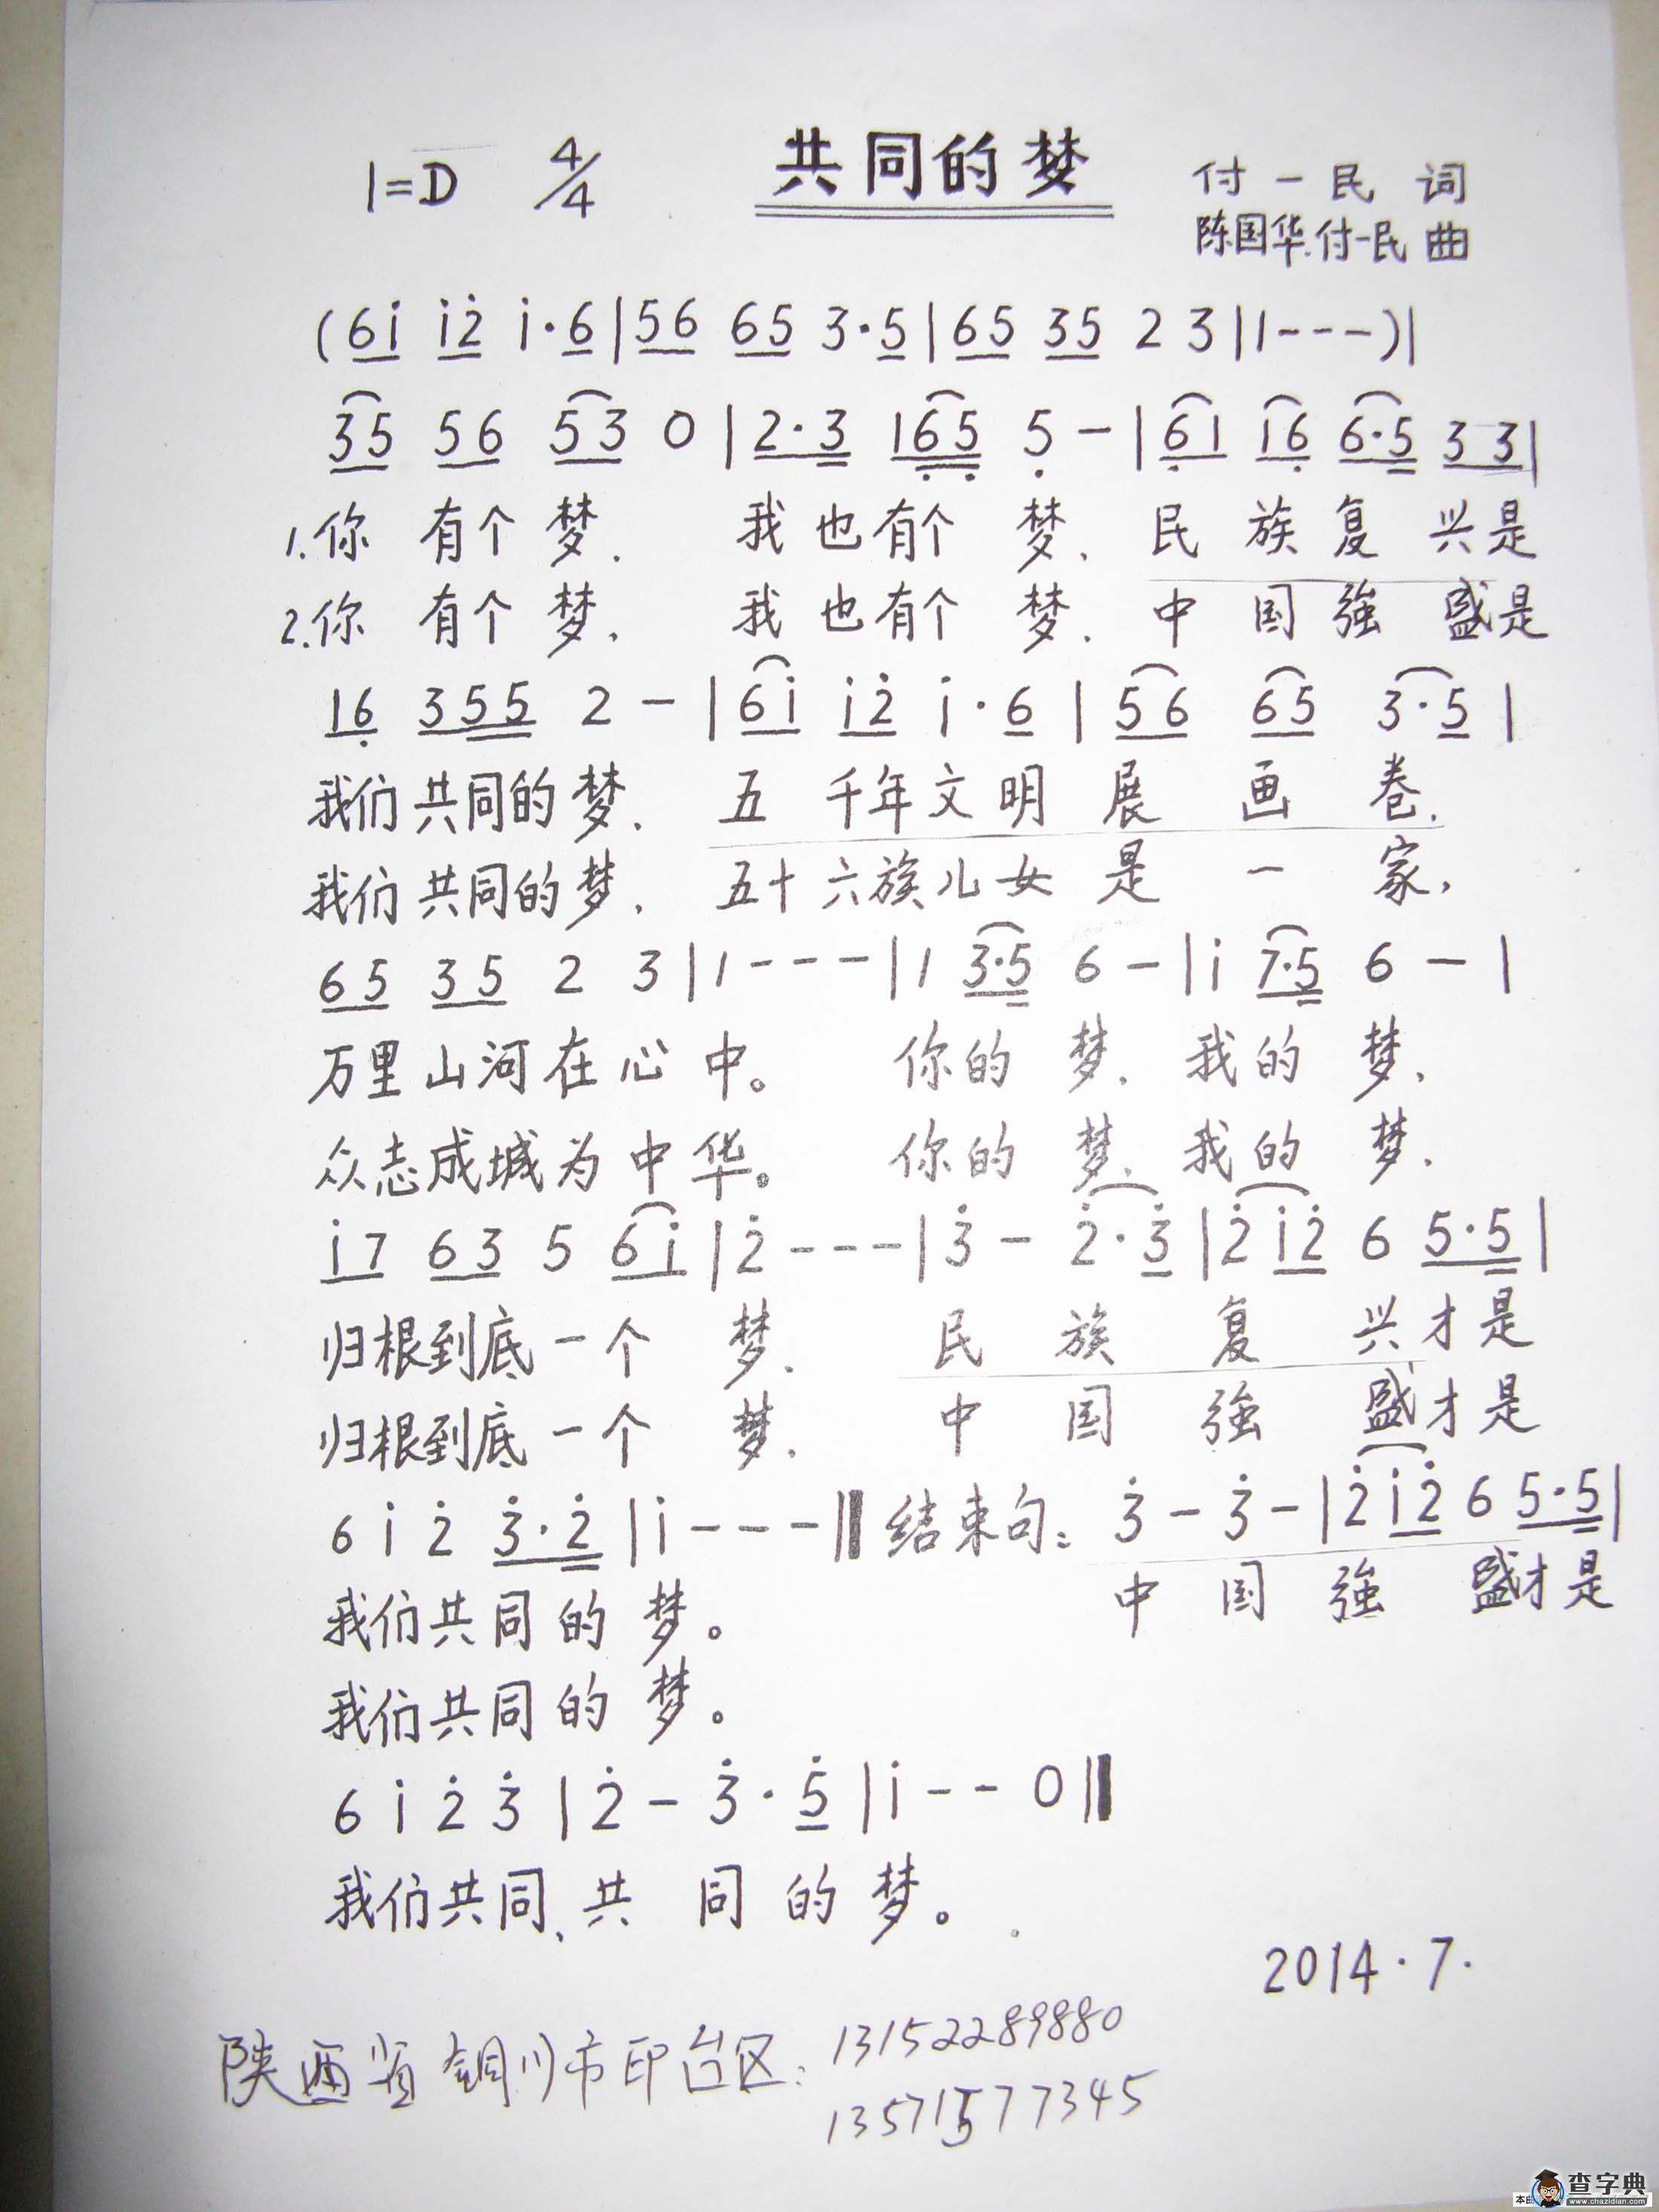 1=D 4/4 共同的梦 付一民 词
陈国华.付一民 曲
(6i i2̇ i·6|56 65 3·5|65 35 2 3|1---)|
35 56 53 0|2·3 165 5-|61 16 6·5 33|
1.你 有个 梦. 我也有个 梦. 民族复兴是
2.你 有个 梦. 我也有个 梦. 中国強盛是
16 355 2-|6i i2̇ i·6|56 65 3·5|
我们共同的梦. 五千年文明展画卷.
我们共同的梦. 五十六族儿女是一家,
65 35 2 3|1---|1 3·5 6-|i 7·5 6-|
万里山河在心中。 你的梦. 我的梦,
众志成城为中华。 你的梦. 我的梦.
i7 63 5 6i|2̇---|3̇- 2̇·3̇|2̇ i2̇ 6 5·5|
归根到底一个梦. 民族复兴才是
归根到底一个梦. 中国強盛才是
6 i 2̇ 3̇·2̇|i---‖ 结束句: 3̇-3̇-|2̇ i2̇ 6 5·5|
我们共同的梦。 中国強盛才是
我们共同的梦。
6 i 2̇ 3̇|2̇-3̇·5̇|i--0‖
我们共同、共同的梦。
2014.7.
陕西省铜川市印台区: 13152289880
13571577345
查字典
www.chazidian.com